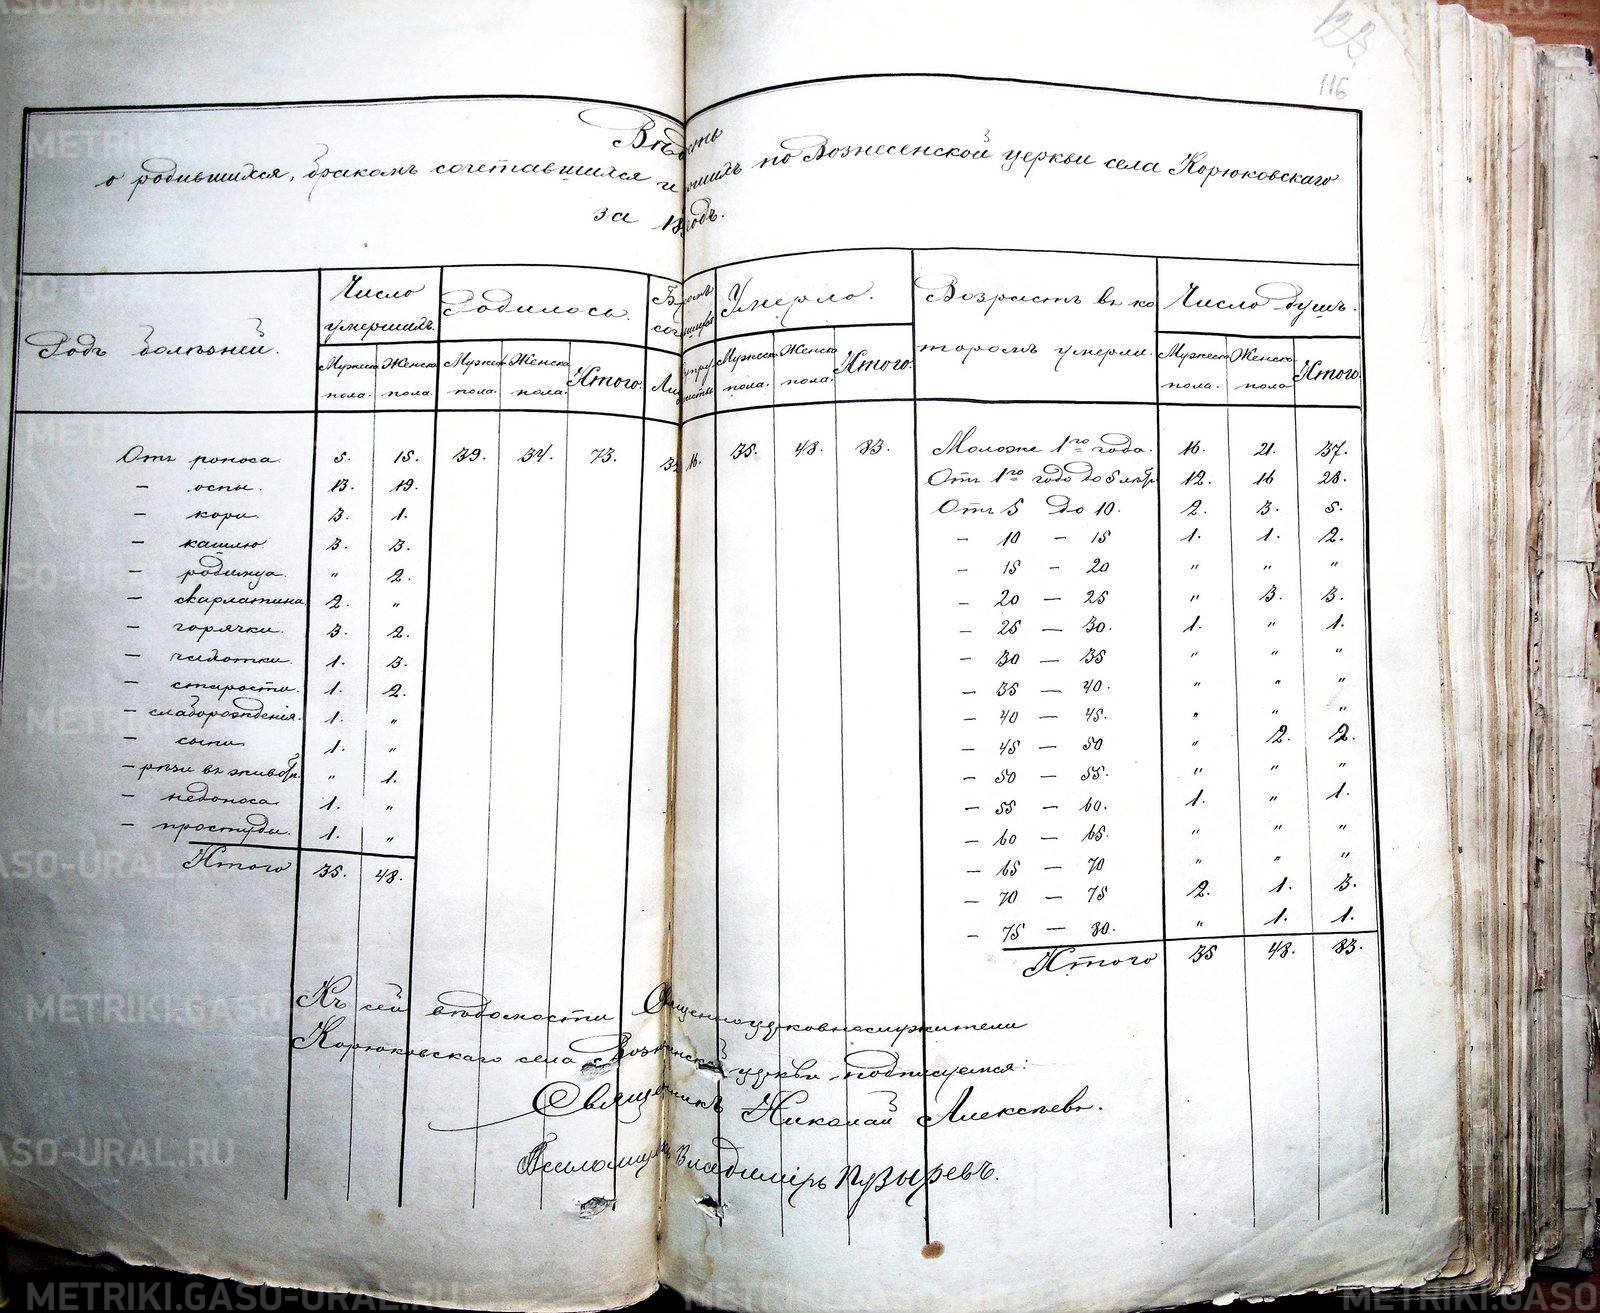 123.
116
Вѣдомость
о родившихся, бракомъ сочетавшихся и умершихъ по Вознесенской церкви села Корюковскаго
за 18 годъ.
Родъ болѣзней. Число умершихъ. Родилось. Умерло. Возрастъ въ которомъ умерли. Число душъ.
Мужеска пола. Женска пола. Мужеска пола. Женска пола. Итого. Мужеска пола. Женска пола. Итого. Мужеска пола. Женска пола Итого.
Отъ поноса 5. 15. 39. 34. 73. 32 16. 35. 48. 83. Моложе 1го года. 16. 21. 37.
— оспы. 13. 19. Отъ 1го года до 5 лѣтъ 12. 16 28.
— кори 3. 1. Отъ 5 до 10. 2. 3. 5.
— кашлю. 3. 3. — 10 — 15 1. 1. 2.
— родимца. " 2. — 15 — 20 " " "
— скарлатина 2. " — 20 — 25 " 3. 3.
— горячки. 3. 2. — 25 — 30. 1. " 1.
— чахотки. 1. 3. — 30 — 35 " " "
— старости. 1. 2. — 35 — 40. " " "
— слаборожденія. 1. " — 40 — 45. " " "
— сыпи 1. " — 45 — 50 " 2. 2.
— рѣзи въ животѣ. " 1. — 50 — 55. " " "
— недоноса 1. " — 55 — 60. 1. " 1.
— простуды. 1. " — 60 — 65. " " "
Итого 35. 48. — 65 — 70 " " "
— 70 — 75 2. 1. 3.
— 75 — 80. " 1. 1.
Итого 35 48. 83.
Къ сей вѣдомости Священноцерковнослужители
Корюковскаго села Вознесенской церкви подписуемся:
Священникъ Николай Алексѣевъ.
Псаломщикъ Владимiръ Пузыревъ.
METRIKI.GASO-URAL.RU